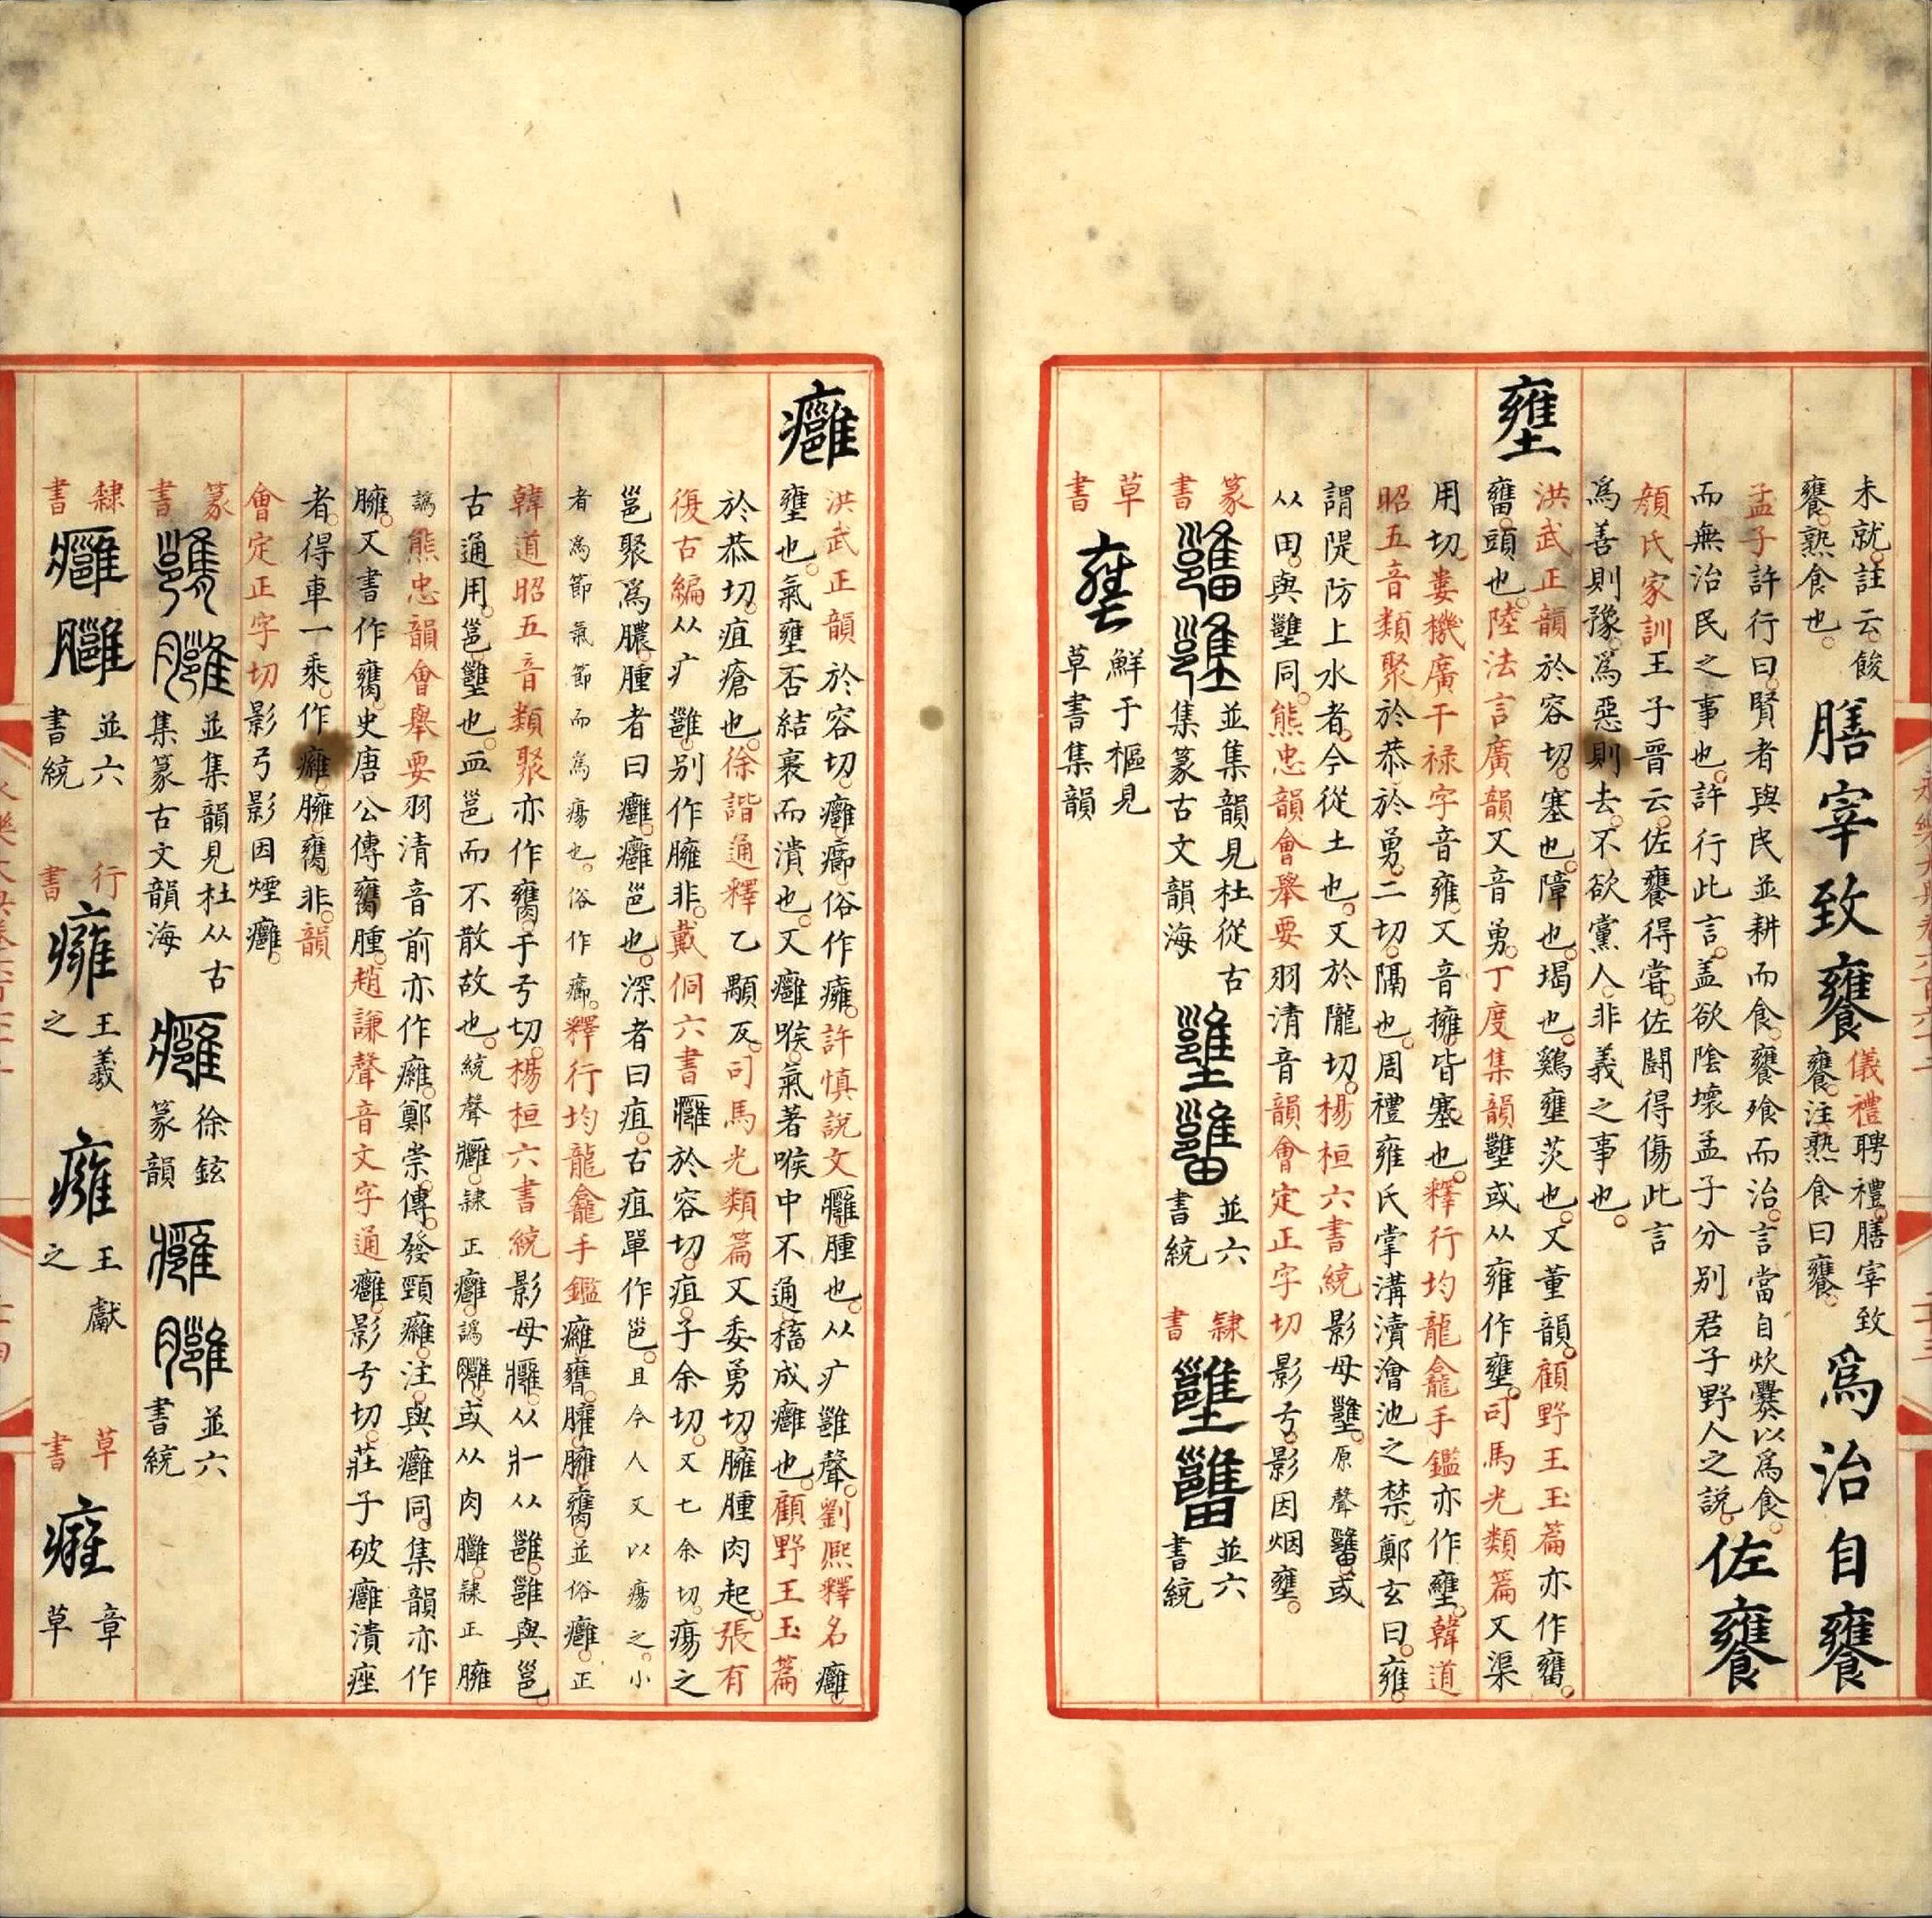 未就註云餕
饔熟食也
膳宰致饔
儀禮聘禮膳宰致
饔注熟食曰饔
為治自饔
孟子許行曰賢者與民並耕而食饔飱而治言當自炊爨以為食
而無治民之事也許行此言盖欲陰壞孟子分别君子野人之説
佐饔
顔氏家訓王子晉云佐饔得甞佐鬭得傷此言
為善則豫為惡則去不欲黨人非義之事也
壅
洪武正韻於容切塞也障也堨也鷄壅茨也又董韻顧野王玉篇亦作㽫
㽫頭也陸法言廣韻又音勇丁度集韻䜆或从雍作壅司馬光類篇又渠
用切婁機廣干禄字音雍又音擁皆塞也釋行均龍龕手鑑亦作壅韓道
昭五音類聚於恭於勇二切隔也周禮雍氏掌溝瀆澮池之禁鄭玄曰雍
謂隄防上水者今從土也又於隴切楊桓六書統影母原聲或
从田與同熊忠韻會舉要羽清音韻會定正字切影弓影因烟壅
篆書
並集韻見杜從古
集篆古文韻海
並六
書統
隸書
並六
書統
草書
壅
鮮于樞見
草書集韻
癰
洪武正韻於容切癰癤俗作癕許慎説文癰腫也从疒雝聲劉熙釋名癰
壅也氣壅否結裹而潰也又癰喉氣著喉中不通穡成癰也顧野王玉篇
於恭切疽瘡也徐諧通釋乙顒反司馬光類篇又委勇切臃腫肉起張有
復古編从疒雝别作臃非戴侗六書癰於容切疽子余切又七余切瘍之
邕聚為膿腫者曰癰癰邕也深者曰疽古疽單作邕且今人又以瘍之小
者為節氣節而為瘍也俗作癤釋行均龍龕手鑑並俗癰正
韓道昭五音類聚亦作于弓切楊桓六書統影母从爿从雝雝與邕
古通用邕也血邕而不散故也統聲隸正癰譌或从肉隸正臃
譌熊忠韻會舉要羽清音前亦作癕鄭崇傳發頸癕注與癰同集韻亦作
臃又書作史唐公傳腫趙謙聲音文字通癰影弓切莊子破癰潰痤
者得車一乘作癕臃非韻
會定正字切影弓影因煙癰
篆書
並集韻見杜从古
集篆古文韻海
徐鉉
篆韻
並六
書統
隸書
並六
書統
行書
癕
王羲之
癕
王獻之
草書
癕
章草